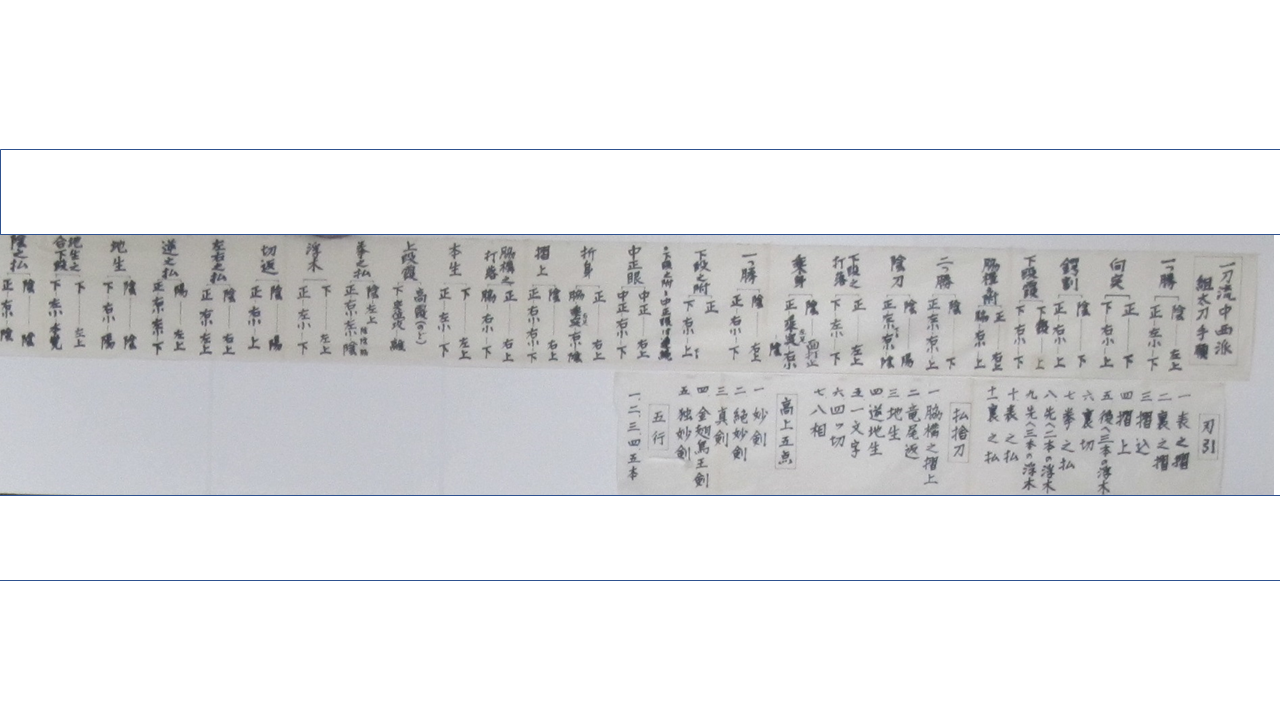 一刀流中西派
組太刀手順
一つ勝
陰 左上
正 左小 下
向突
正 下
下 右小 上
鍔割
陰 下
正 右小 上
下段霞
下段霞 上
下 右小 右上
脇構附
正 右上
脇 右小 上
二つ勝
陰 下
正 左右小 上
陰刀
陰 陽
正 左右小 陰
下段之
打落
正 左上
下 左小 下
乗身
陰
正
一つ勝
陰 右上
正 右小 下
下段之附
正
下 右小 上
中正眼
中正 右上
中正 右小 下
折身
正 右上
脇 右陰
摺上
陰 右上
正 右小 下
脇構之
打落
正 右上
脇 右小 下
本生
下 左上
正 左小 下
上段霞
高霞
下
拳之払
陰 左上
正 右小 左小 陰
浮木
下 左上
正 左小 下
切返
陰 陽
正 右小 上
左右之払
陰 右上
正 右小 左上
逆之払
陽 左上
正 右小 左小 下
地生
陰 陰
下 右小 陽
地生之
合下段
下 左上
下 左小
陰之払
陰 陰
正 右小 陰
刃引
一 表之摺
二 裏之摺
三 摺込
四 摺上
五 後へ三本の浮木
六 裏切
七 拳之払
八 先へ二本の浮木
九 先へ三本の浮木
十 表之払
十一 裏之払
払捨刀
一 脇構之摺上
二 竜尾返
三 地生
四 逆地生
五 一文字
六 四ッ切
七 八相
高上五点
一 妙剣
二 絶妙剣
三 真剣
四 金翅鳥王剣
五 独妙剣
五行
一、二、三、四、五本